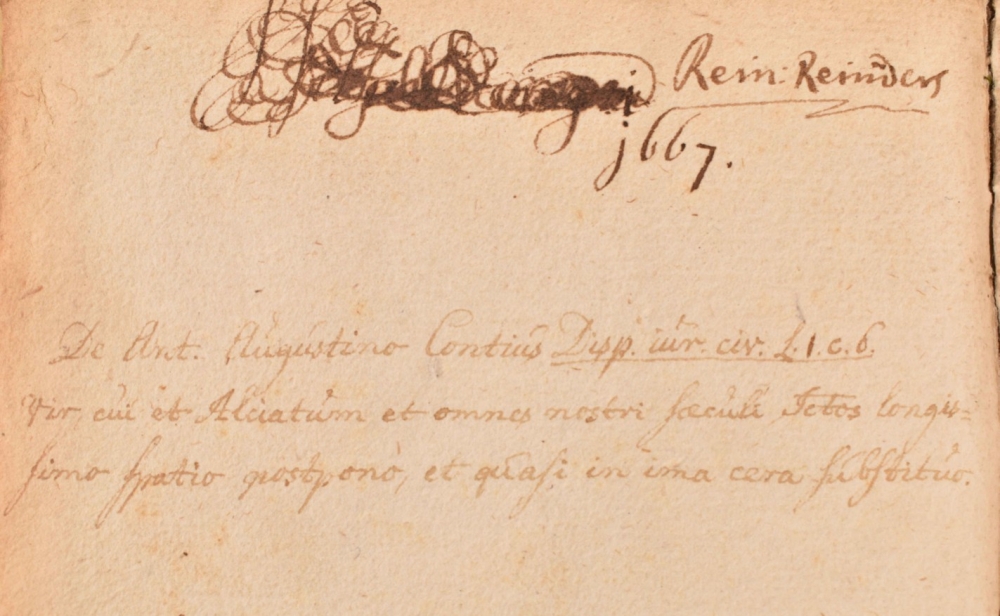 Rein: Reinders
1667.
De Ant. Augustino Contius Disp. iur. civ. L. 1. c. 6.
Vir, cui et Alciatum et omnes nostri sæculi Jctos longis=
simo spatio postpono, et quasi in ima cera substituo.